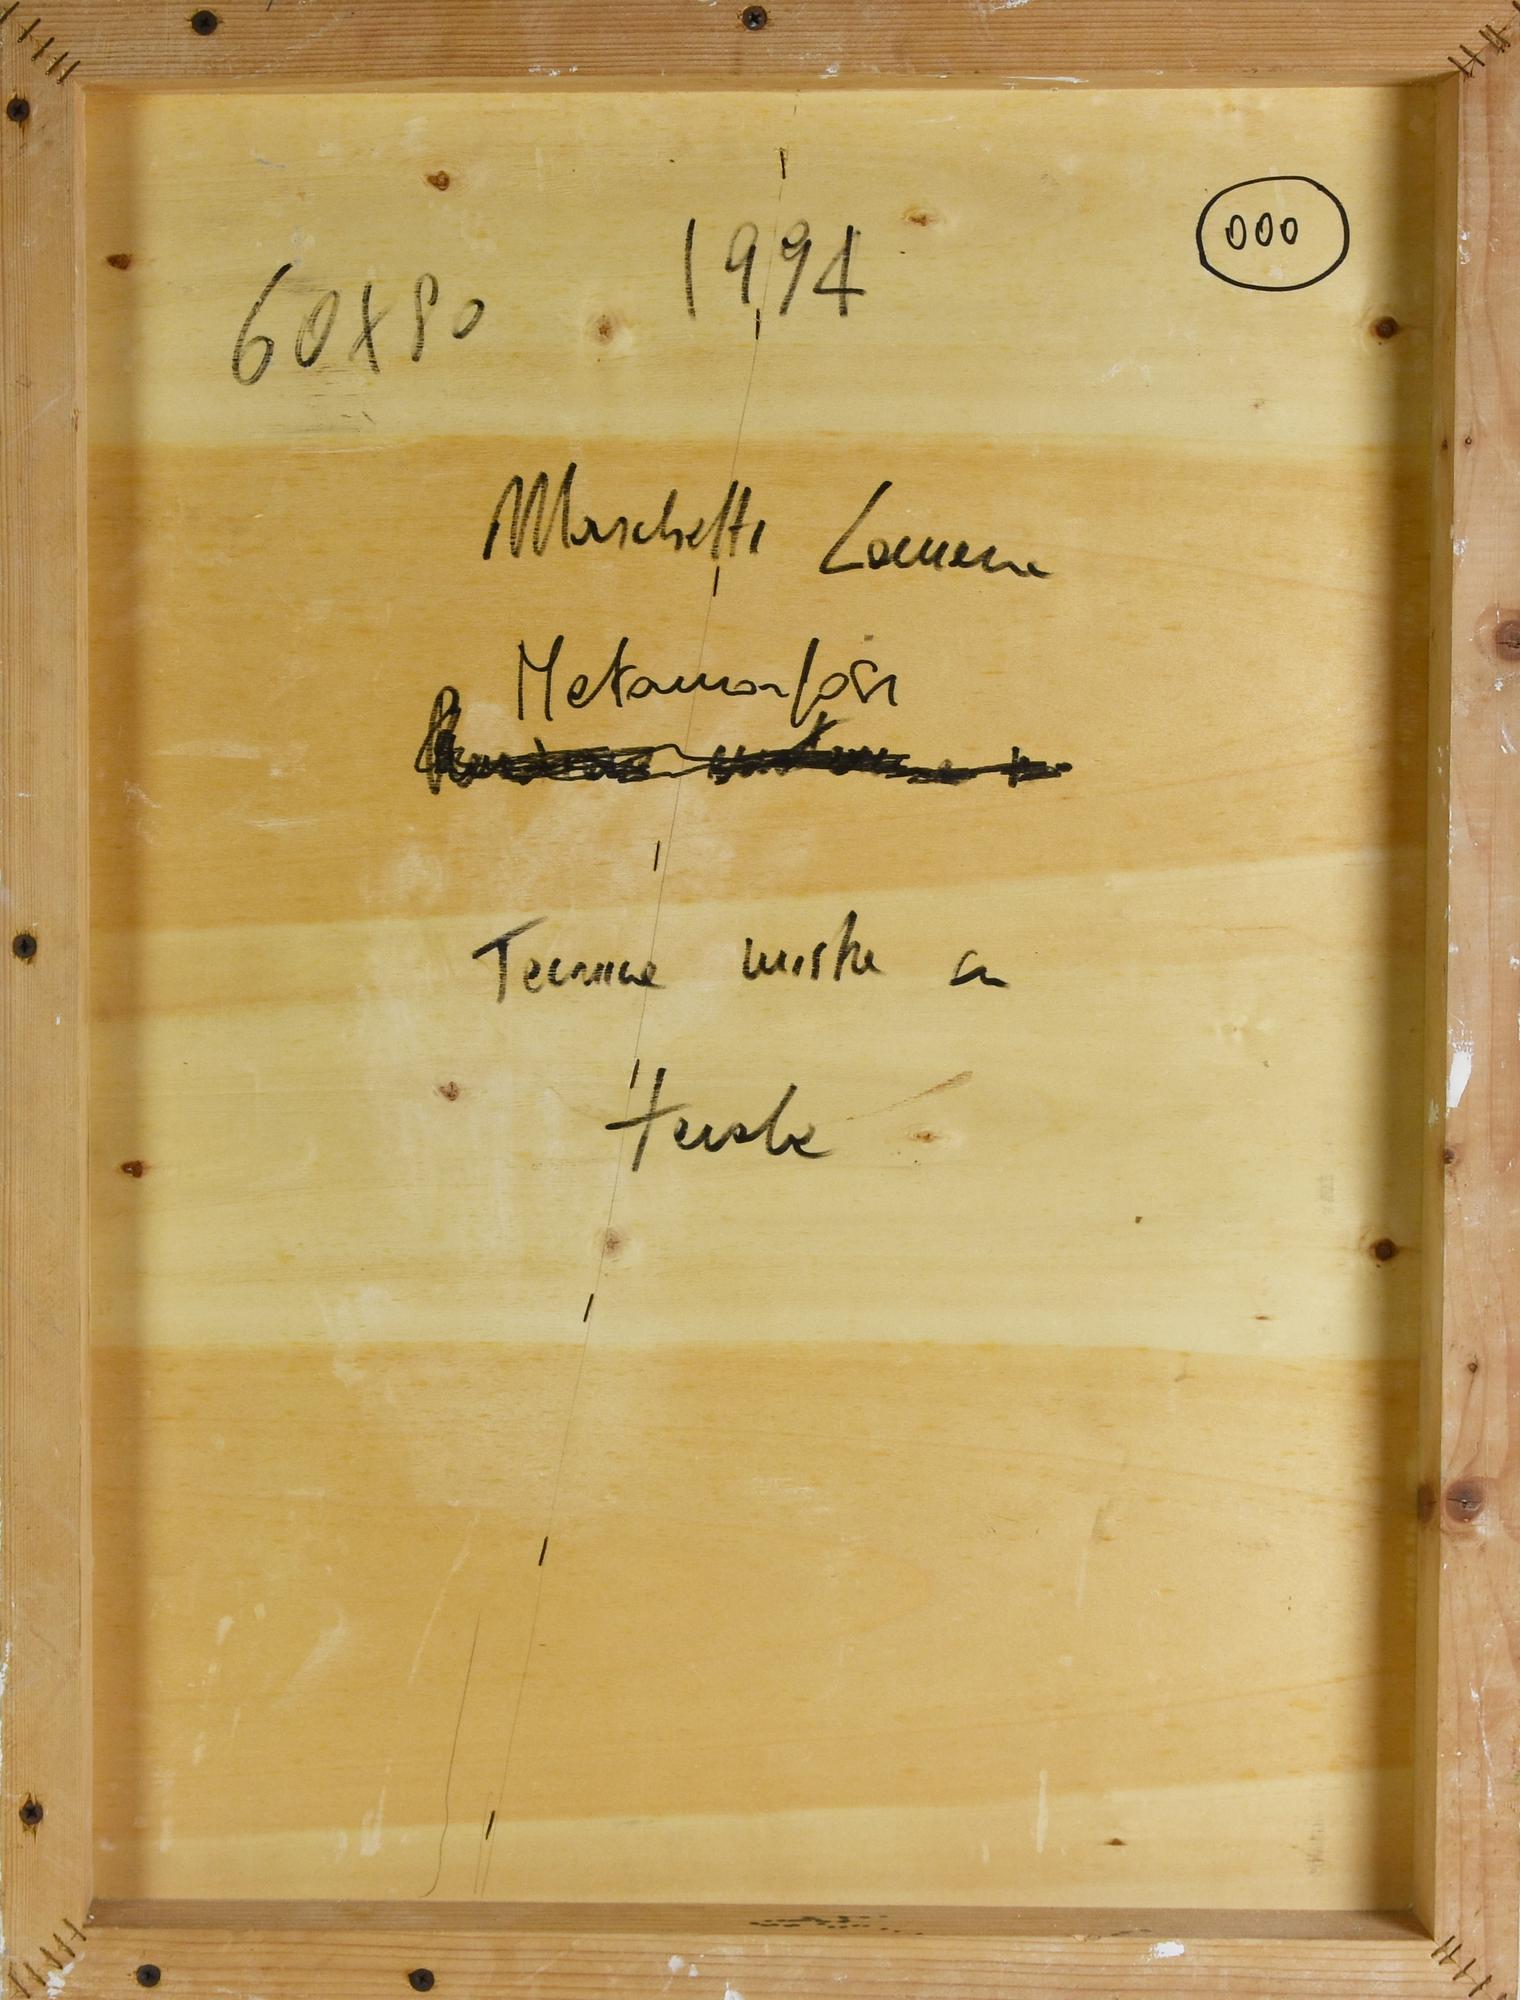 60x80 1994 000
Marchetti Lorena
Metamorfosi
Tecnica mista su
tavola